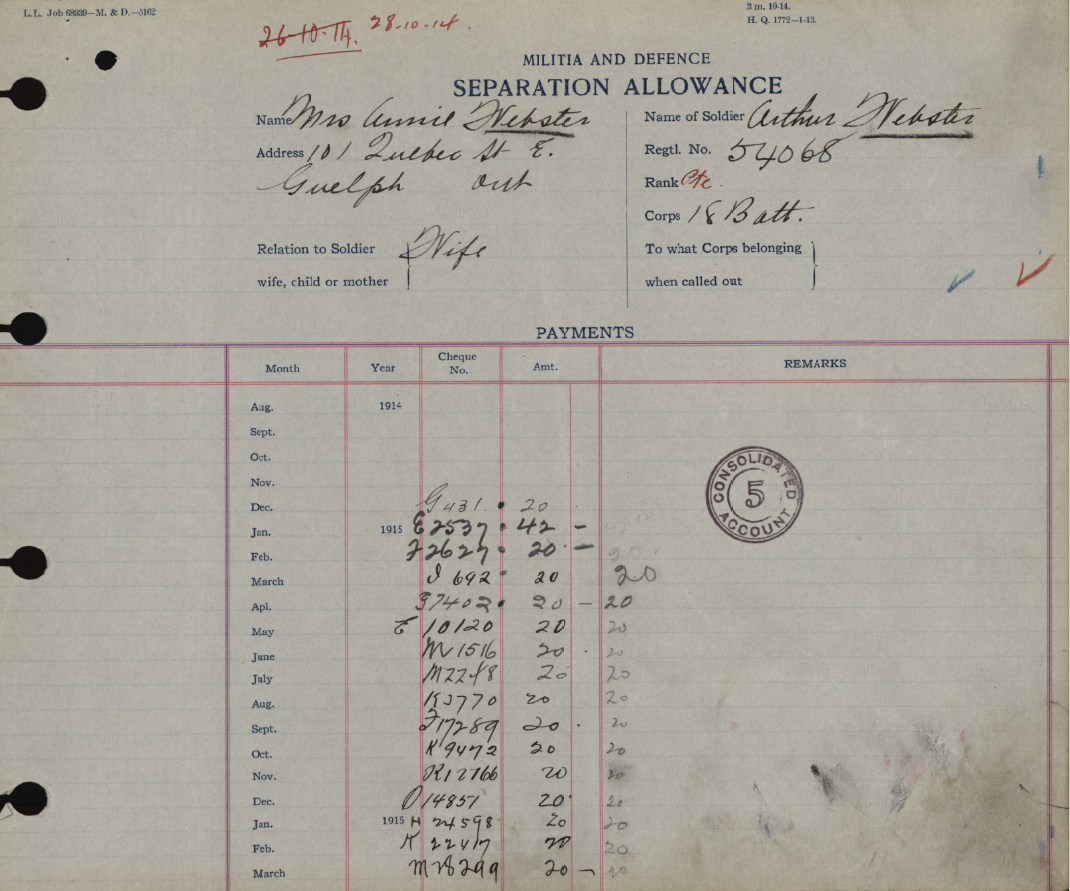 L.L. Job 68939—M. & D.—5162
3 m. 10-14.
H. Q. 1772—1-13.
26-10-14. 28-10-14.
MILITIA AND DEFENCE
SEPARATION ALLOWANCE
Name Mrs Annie Webster
Name of Soldier Arthur Webster
Address 101 Quebec St E.
Regtl. No. 54068
Guelph Ont
Rank Pte.
Corps 18 Batt.
Relation to Soldier Wife
To what Corps belonging
wife, child or mother
when called out
PAYMENTS
Month Year Cheque No. Amt. REMARKS
Aug. 1914
Sept.
Oct.
CONSOLIDATED
5
ACCOUNT
Nov.
Dec. G 431. 20
Jan. 1915 E 2537 42 —
Feb. F 2627 20 — 20
March J 692 20 20
Apl. G 7402 20 — 20
May E 10120 20 20
June M 1516 20 20
July M 2248 20 20
Aug. K 3770 20 20
Sept. F 17289 20 20
Oct. K 9472 20 20
Nov. K 12766 20 20
Dec. O 14851 20 20
Jan. 1915 H 24598 20 20
Feb. K 22417 20 20
March M 28299 20 — 20